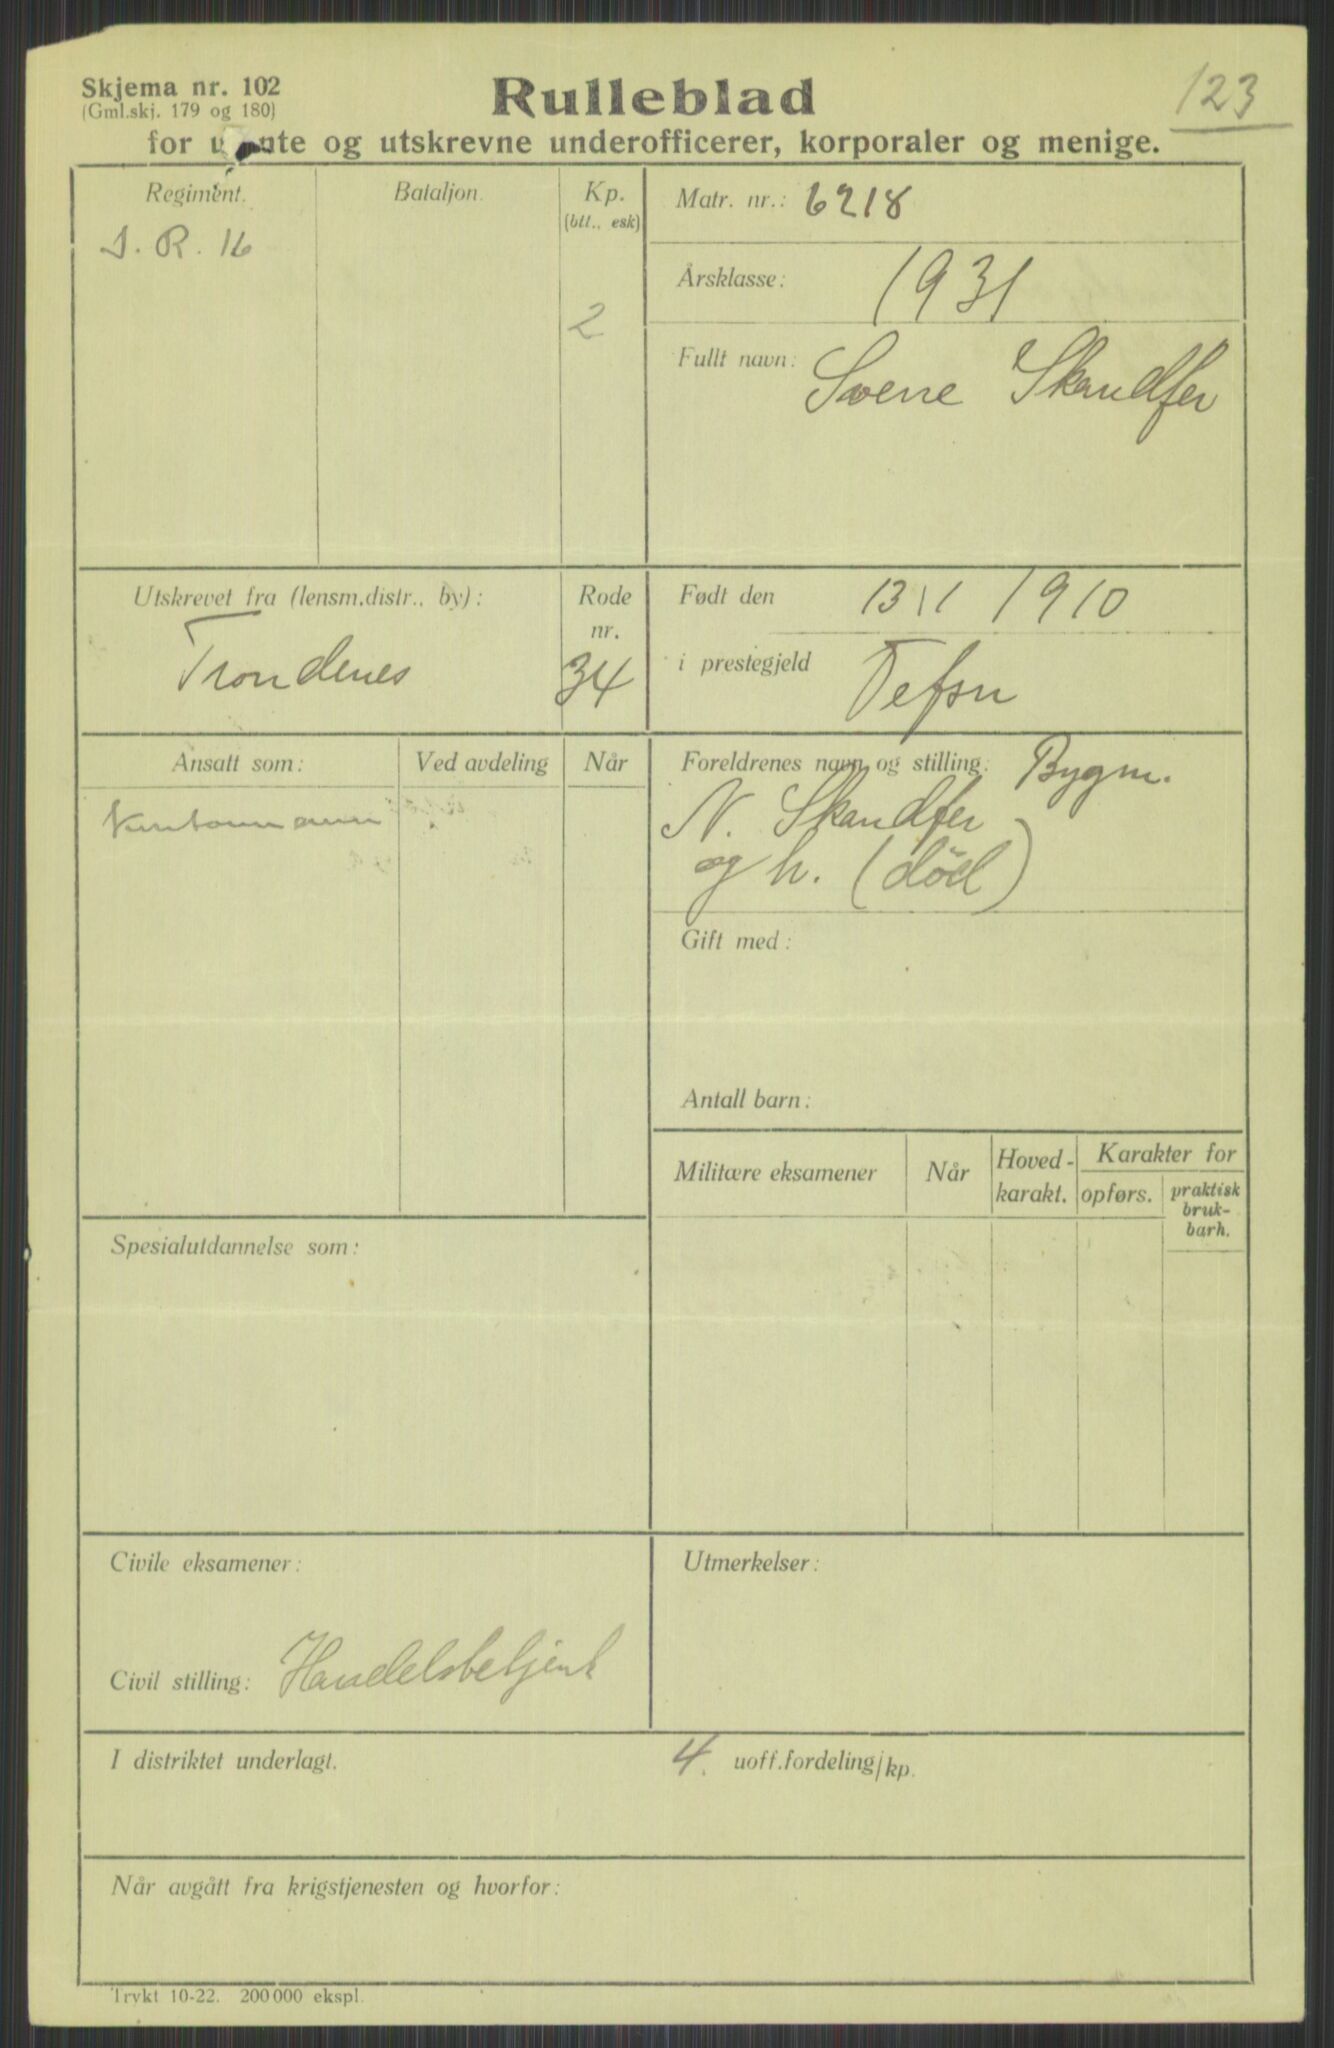 Skjema nr. 102
(Gml.skj. 179 og 180)
Rulleblad
123
for og utskrevne underofficerer, korporaler og menige.
Regiment.
I. R. 16
Bataljon.
Kp.
(btt., esk)
2
Matr. nr.: 6218
Årsklasse: 1931
Fullt navn: Sverre Skandfer
Utskrevet fra (lensm.distr., by):
Trondenes
Rode
nr.
34
Født den 13/1 1910
i prestegjeld Vefsn
Ansatt som:
Ved avdeling
Når
Foreldrenes navn og stilling: Bygm.
N. Skandfer
og h. (død)
Gift med:
Antall barn:
Militære eksamener
Når
Hoved-
karakt.
Karakter for
opførs.
praktisk
bruk-
barh.
Spesialutdannelse som:
Civile eksamener:
Civil stilling: Handelsbetjent
Utmerkelser:
I distriktet underlagt.
4. uoff.fordeling/kp.
Når avgått fra krigstjenesten og hvorfor:
Trykt 10-22. 200 000 ekspl.